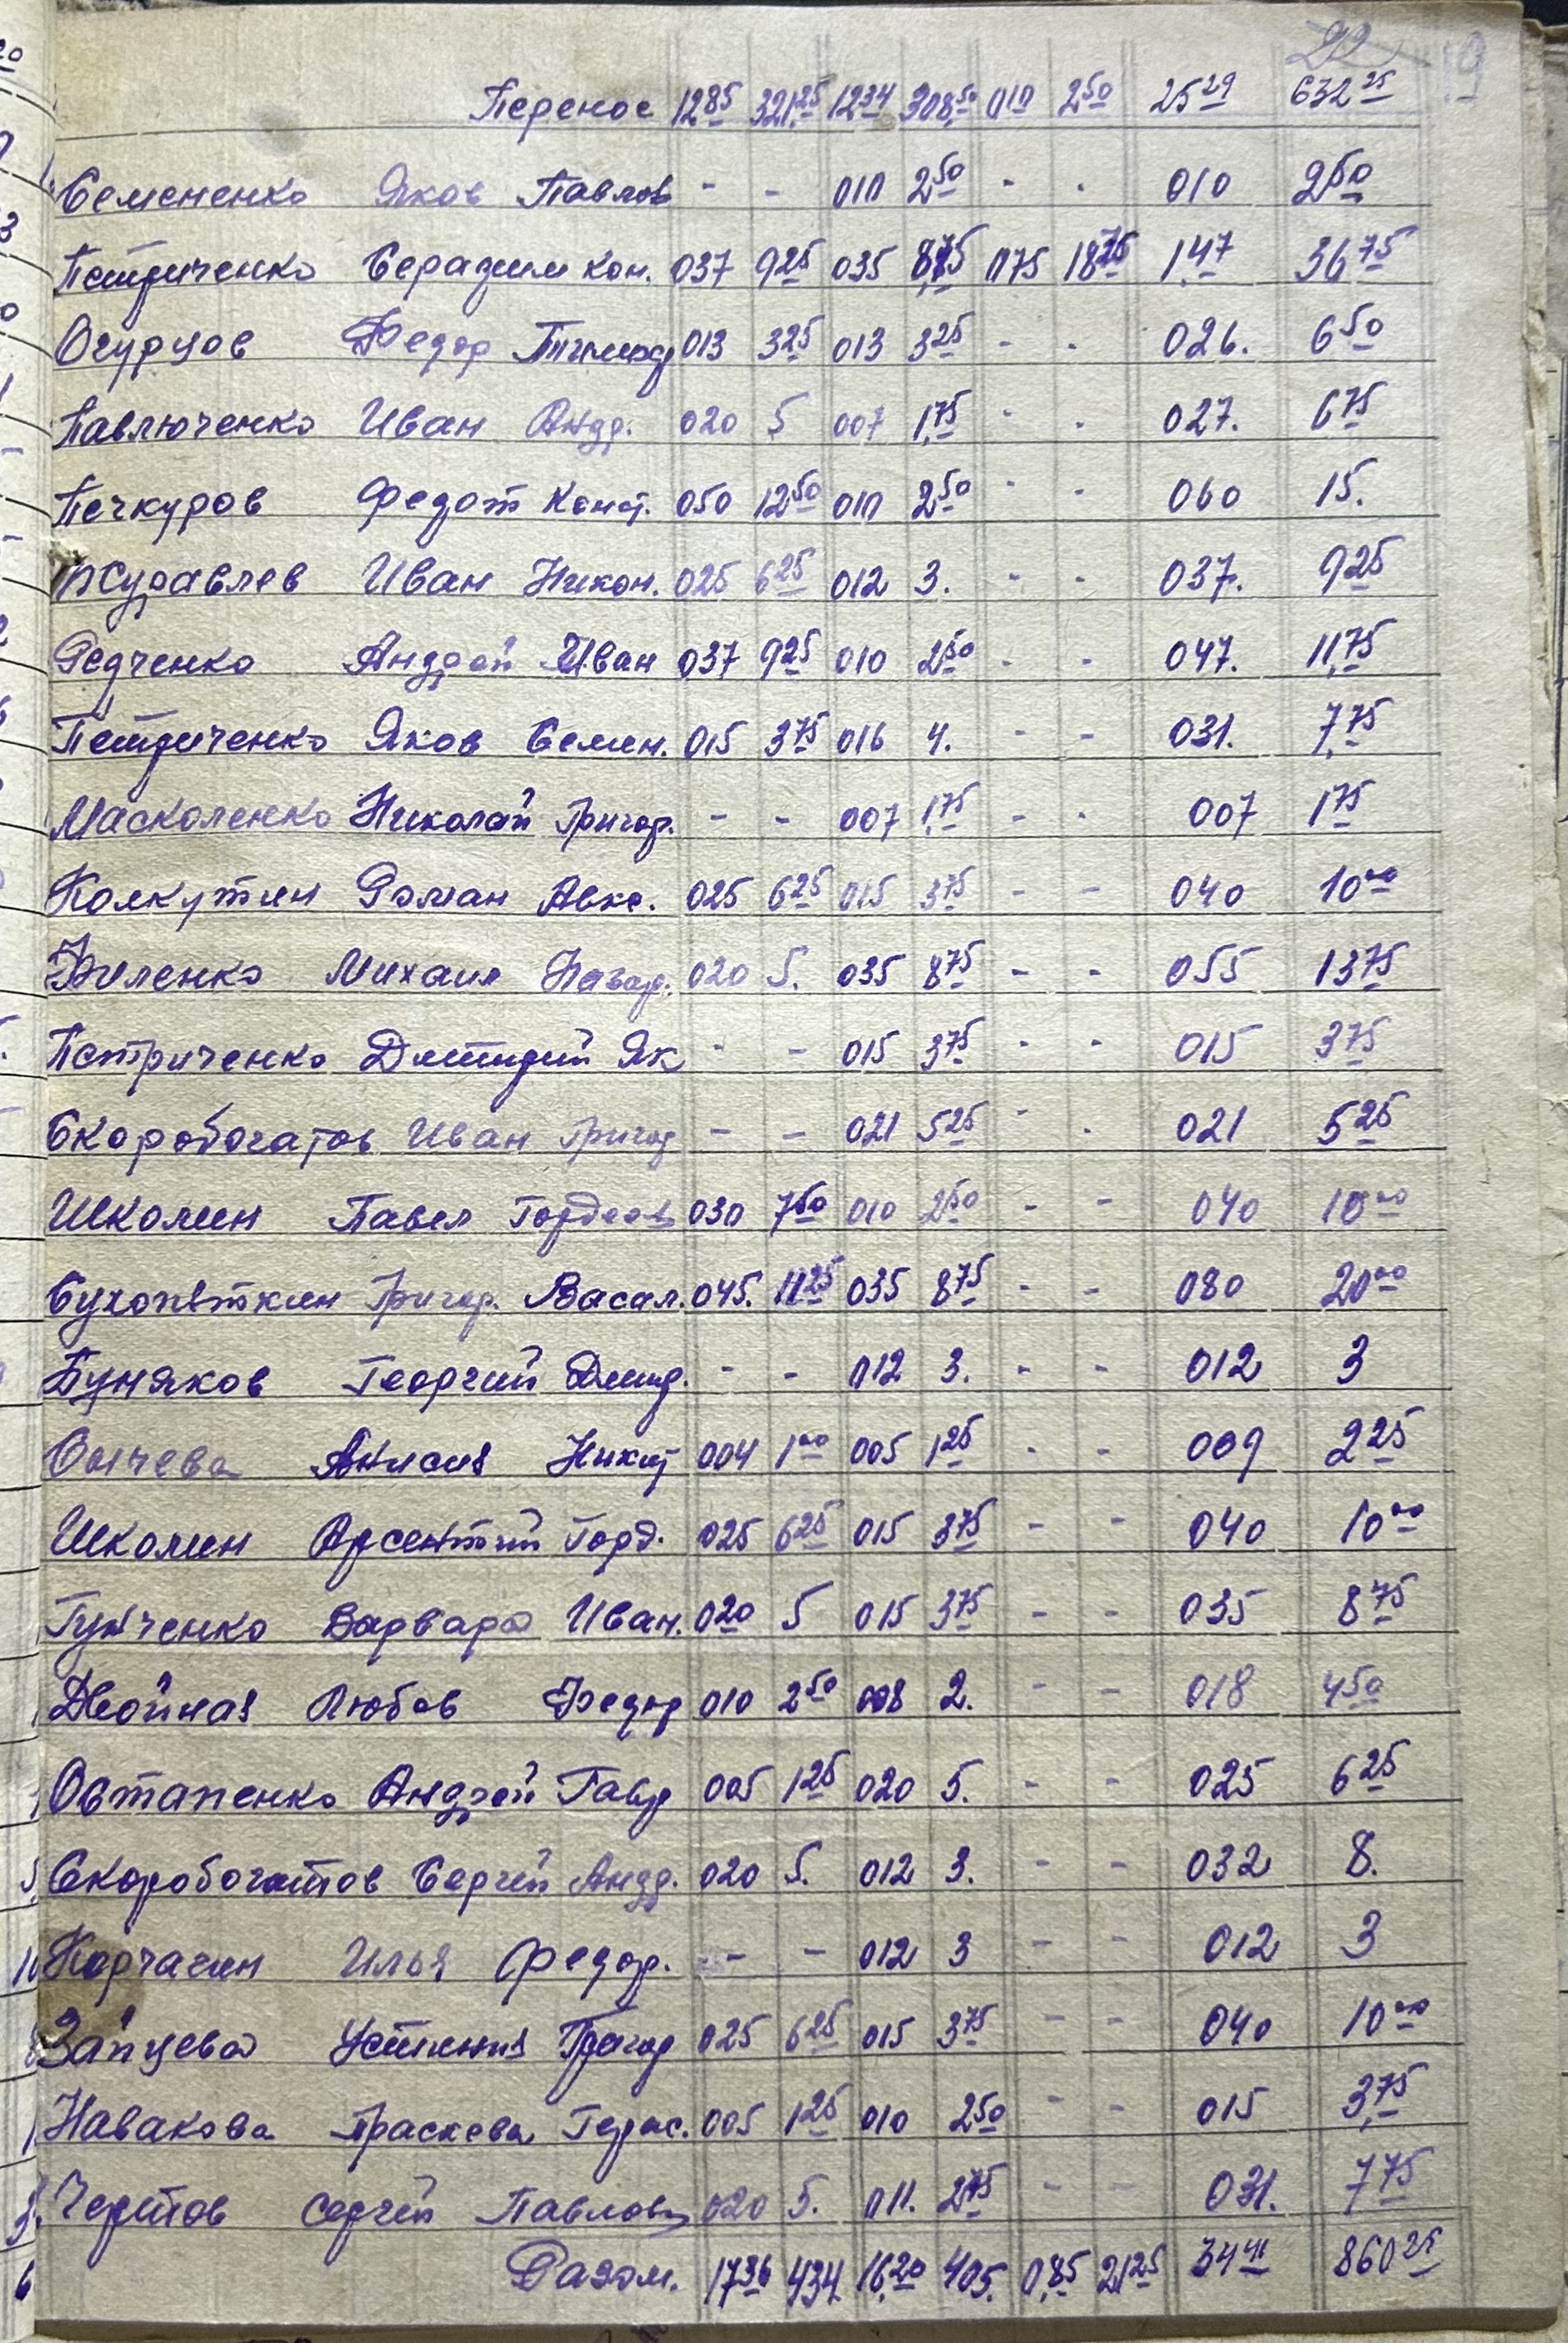 22 19
Перенос 12 85 321,25 12 34 308,50 010 2 50 25 29 632 25
Семененко Яков Павлов - - 010 2 50 - - 010 2 50
Петриченко Серафим Кон. 037 9 25 035 8,75 075 18 75 1,47 36 75
Огурцов Федор 013 3 25 013 3 25 - - 026. 6 50
Павлюченко Иван Андр. 020 5 007 1,75 - - 027. 6 75
Печкуров Федот Конст. 050 12 50 010 2 50 - - 060 15.
Журавлев Иван Никон. 025 6 25 012 3. - - 037. 9 25
Редченко Андрей Иван 037 9 25 010 2 50 - - 047. 11,75
Петриченко Яков Семен. 015 3 75 016 4. - - 031. 7,75
Масколенко Николай Григор. - - 007 1,75 - - 007 1 75
Колкутин Роман Авкс. 025 6 25 015 3 75 - - 040 10 00
Филенко Михаил Назар. 020 5. 035 8 75 - - 055 13 75
Петриченко Дмитрий Як - - 015 3 75 - - 015 3 75
Скоробогатов Иван Григор - - 021 5 25 - - 021 5 25
Школин Павел Гордеев 030 7 50 010 2 50 - - 040 10 00
Сухопяткин Григор. Васил. 045. 11 25 035 8 75 - - 080 20 00
Буняков Георгий Дмит. - - 012 3. - - 012 3
Анисия Никит 004 1 00 005 1 25 - - 009 2 25
Школин Арсентий Горд. 025 6 25 015 3 75 - - 040 10 00
Гунченко Варвара Иван. 020 5 015 3 75 - - 035 8 75
Двойная Любов Федор 010 2 50 008 2. - - 018 4 50
Остапенко Андрей Гавр 005 1 25 020 5. - - 025 6 25
Скоробогатов Сергей Андр. 020 5. 012 3. - - 032 8.
Корчагин Илья Федор. - - 012 3 - - 012 3
Зайцева Устиния Григор 025 6 25 015 3 75 - - 040 10 00
Навакова Праскева Герас. 005 1 25 010 2 50 - - 015 3,75
Чертов Сергей Павлов 020 5. 011. 2 75 - - 031. 7 75
Разом. 17 36 434. 16,20 405. 0,85 21 25 34 41 860 25